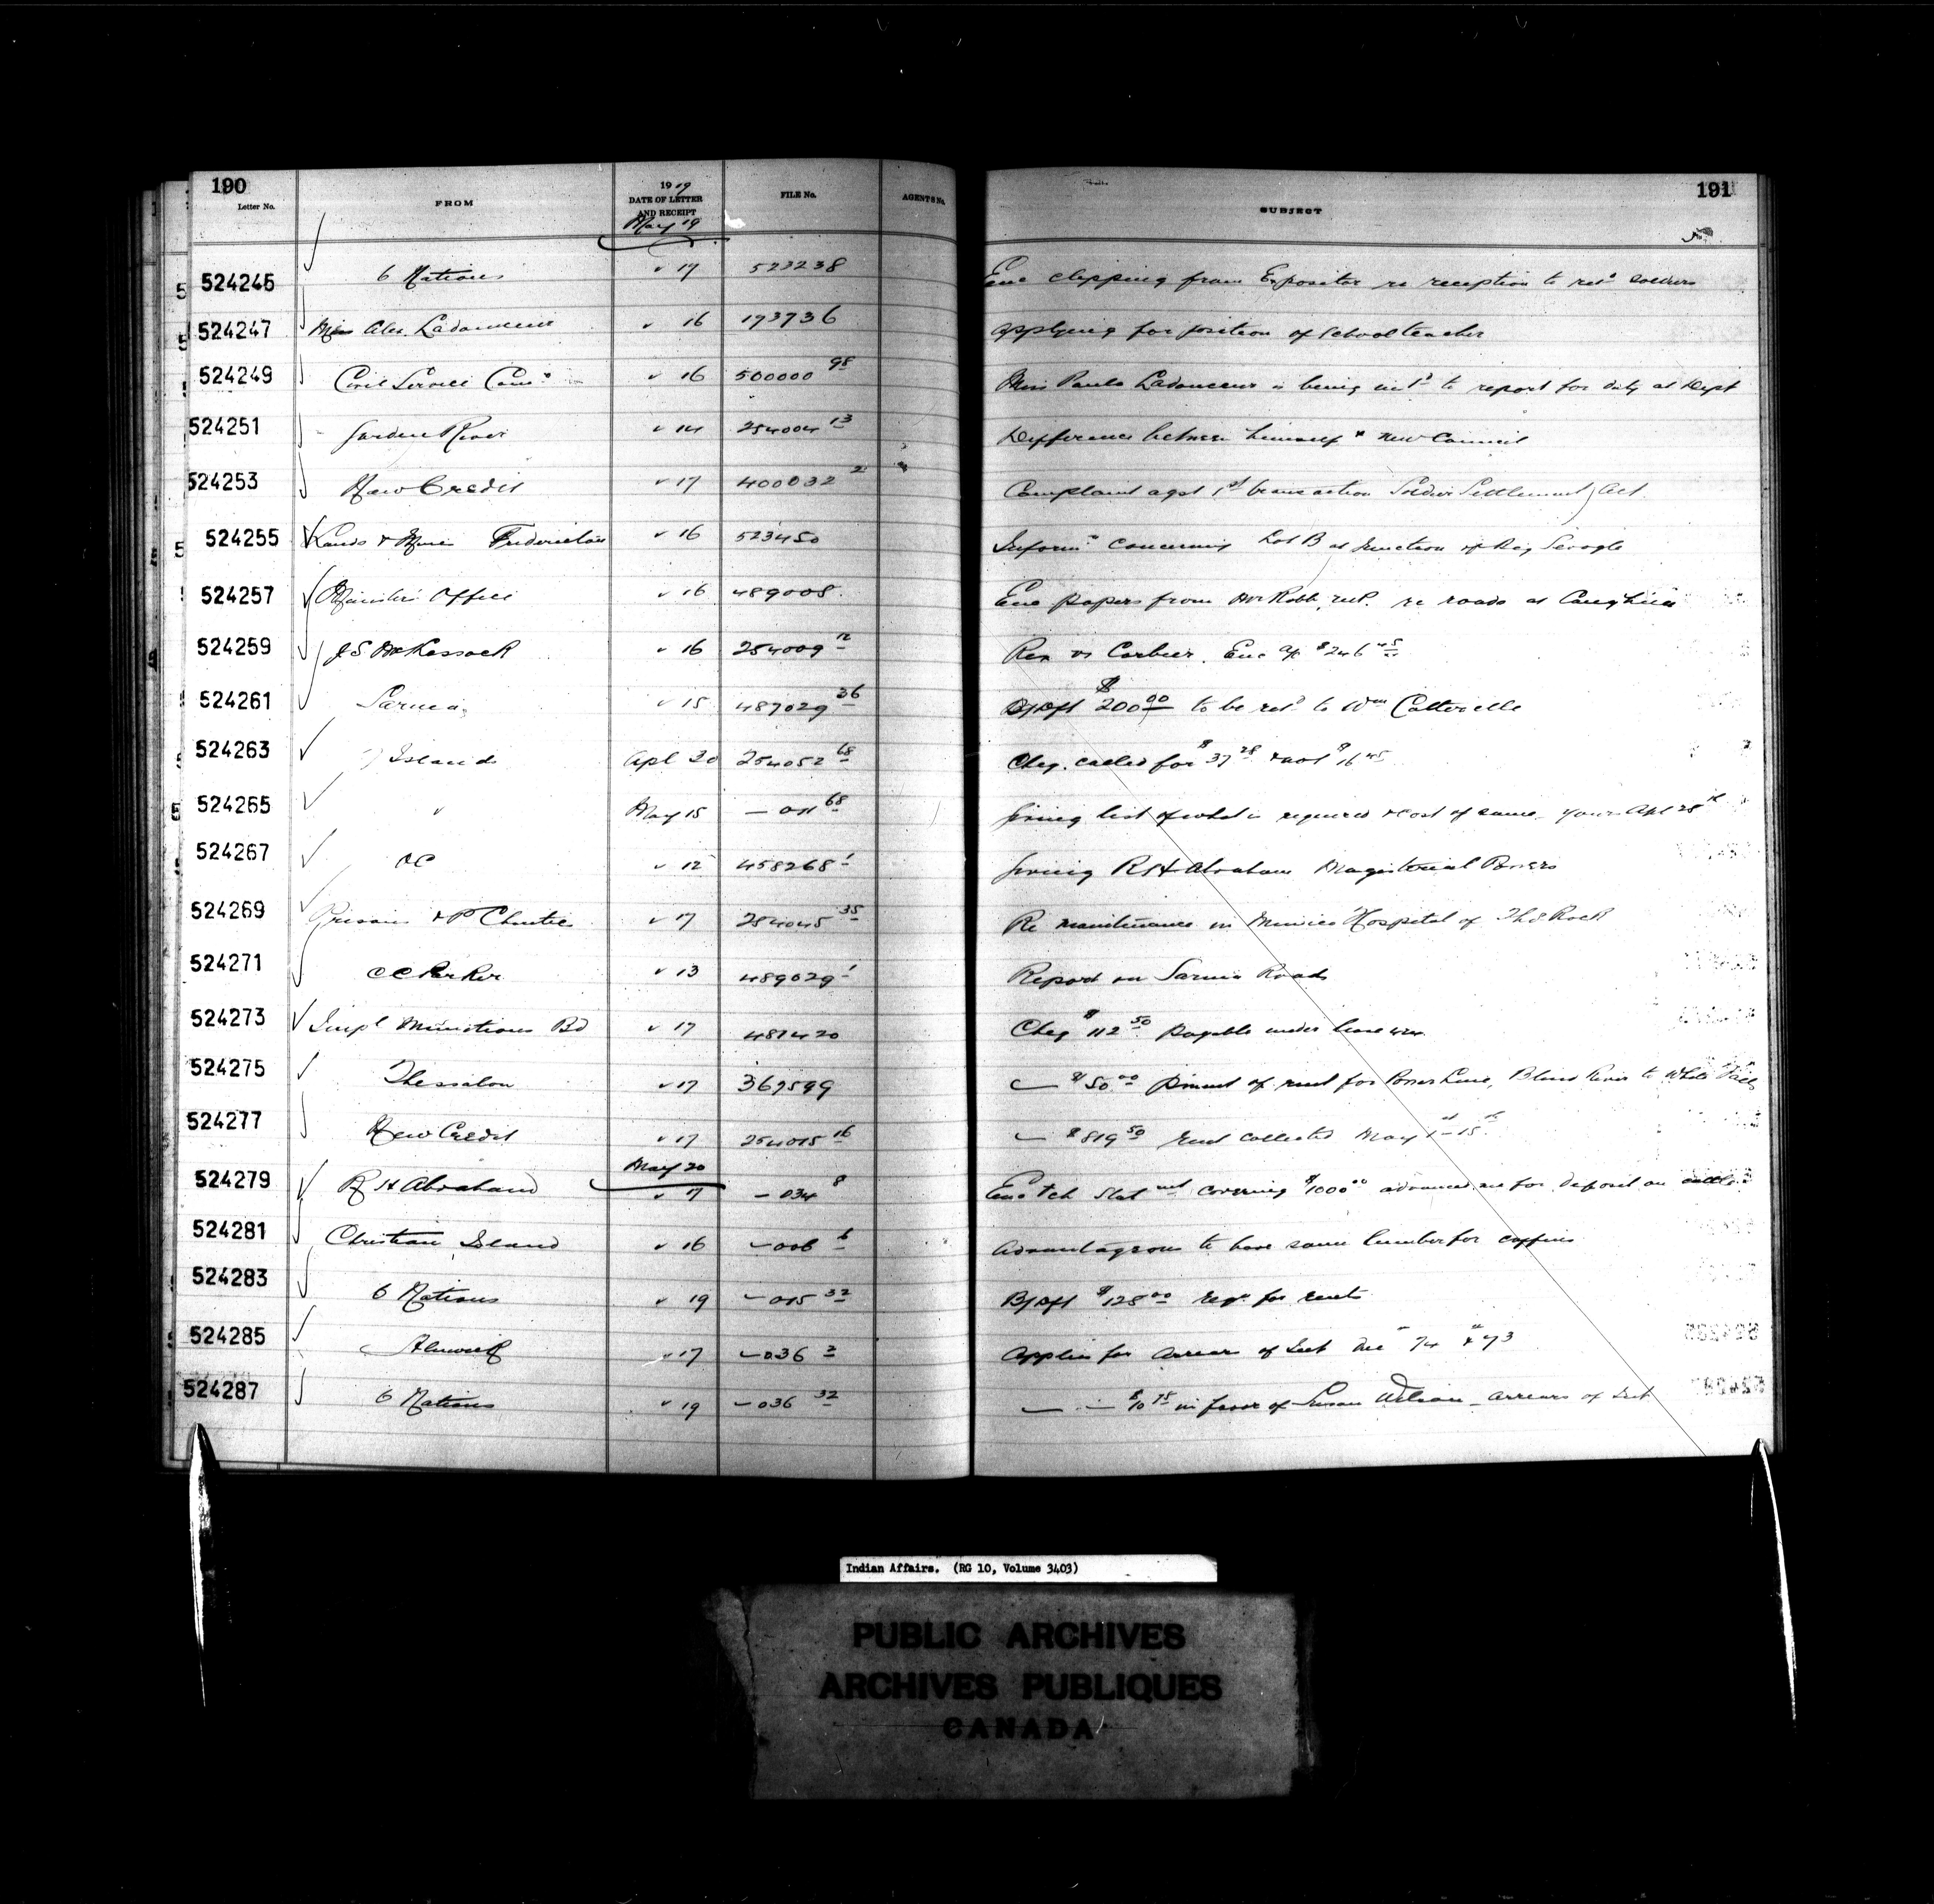 190
191
Letter No. FROM 1919 DATE OF LETTER AND RECEIPT FILE No. AGENTS No. SUBJECT
May 19
524245 6 Nations " 17 523238 Enc clipping from Expositor re reception to retd soldiers
524247 Miss Alex. Ladouceur " 16 193736 Applying for position of School teacher
524249 Civil Service Comn " 16 500000 98 Miss Paula Ladouceur is being instd to report for duty at Dept
524251 Garden River " 14 254004 13 Difference between himself & new Council
524253 New Credit " 17 400032 2 Complaint agst 1st transaction Soldier Settlement Act.
524255 Lands & Mines Fredericton " 16 523450 Informn concerning Lot B at Junction of
524257 Ministers Office " 16 489008 Enc papers from Mr Robb, M.P. re roads at
524259 J S McKessock " 16 254009 12 Rex vs Corbier. Enc a/c $246 45
524261 Sarnia " 15 487029 36 $200 00 to be retd to Wm
524263 Islands Apl 30 254052 68 Cheq. called for $37 28 & $16 45
524265 " May 15 — 68 Giving list of what is required & cost of same. Yours Apl 28th
524267 O C " 12 458268 1 Giving R H Abraham Magisterial Powers
524269 Prisons & P Charities " 17 254045 35 Re maintenance in Mimico Hospital of Rock
524271 C C Parker " 13 489029 1 Report on Sarnia Roads
524273 Impl Munitions Bd " 17 487420 Cheq $112 50 payable under lease
524275 Thessalon " 17 367599 — $150 00 payment of rent for Power Line, Blind River to White Falls
524277 New Credit " 17 254015 16 — $819 50 rent collected May 1st - 15th
May 20
524279 R H Abraham " 17 — 034 8 Enc statmt covering $1000 00 advanced me for deposit on cattle
524281 Christian Island " 16 — 006 6 Advantageous to have some lumber for coffins
524283 6 Nations " 19 — 015 32 $128 00 reqd for rents
524285 Alnwick " 17 — 036 2 Applies for arrears of Int 74 & 73
524287 6 Nations " 19 — 036 32 — — $10 75 in favor of Susan Wilson arrears of Int
Indian Affairs. (RG 10, Volume 3403)
PUBLIC ARCHIVES
ARCHIVES PUBLIQUES
CANADA